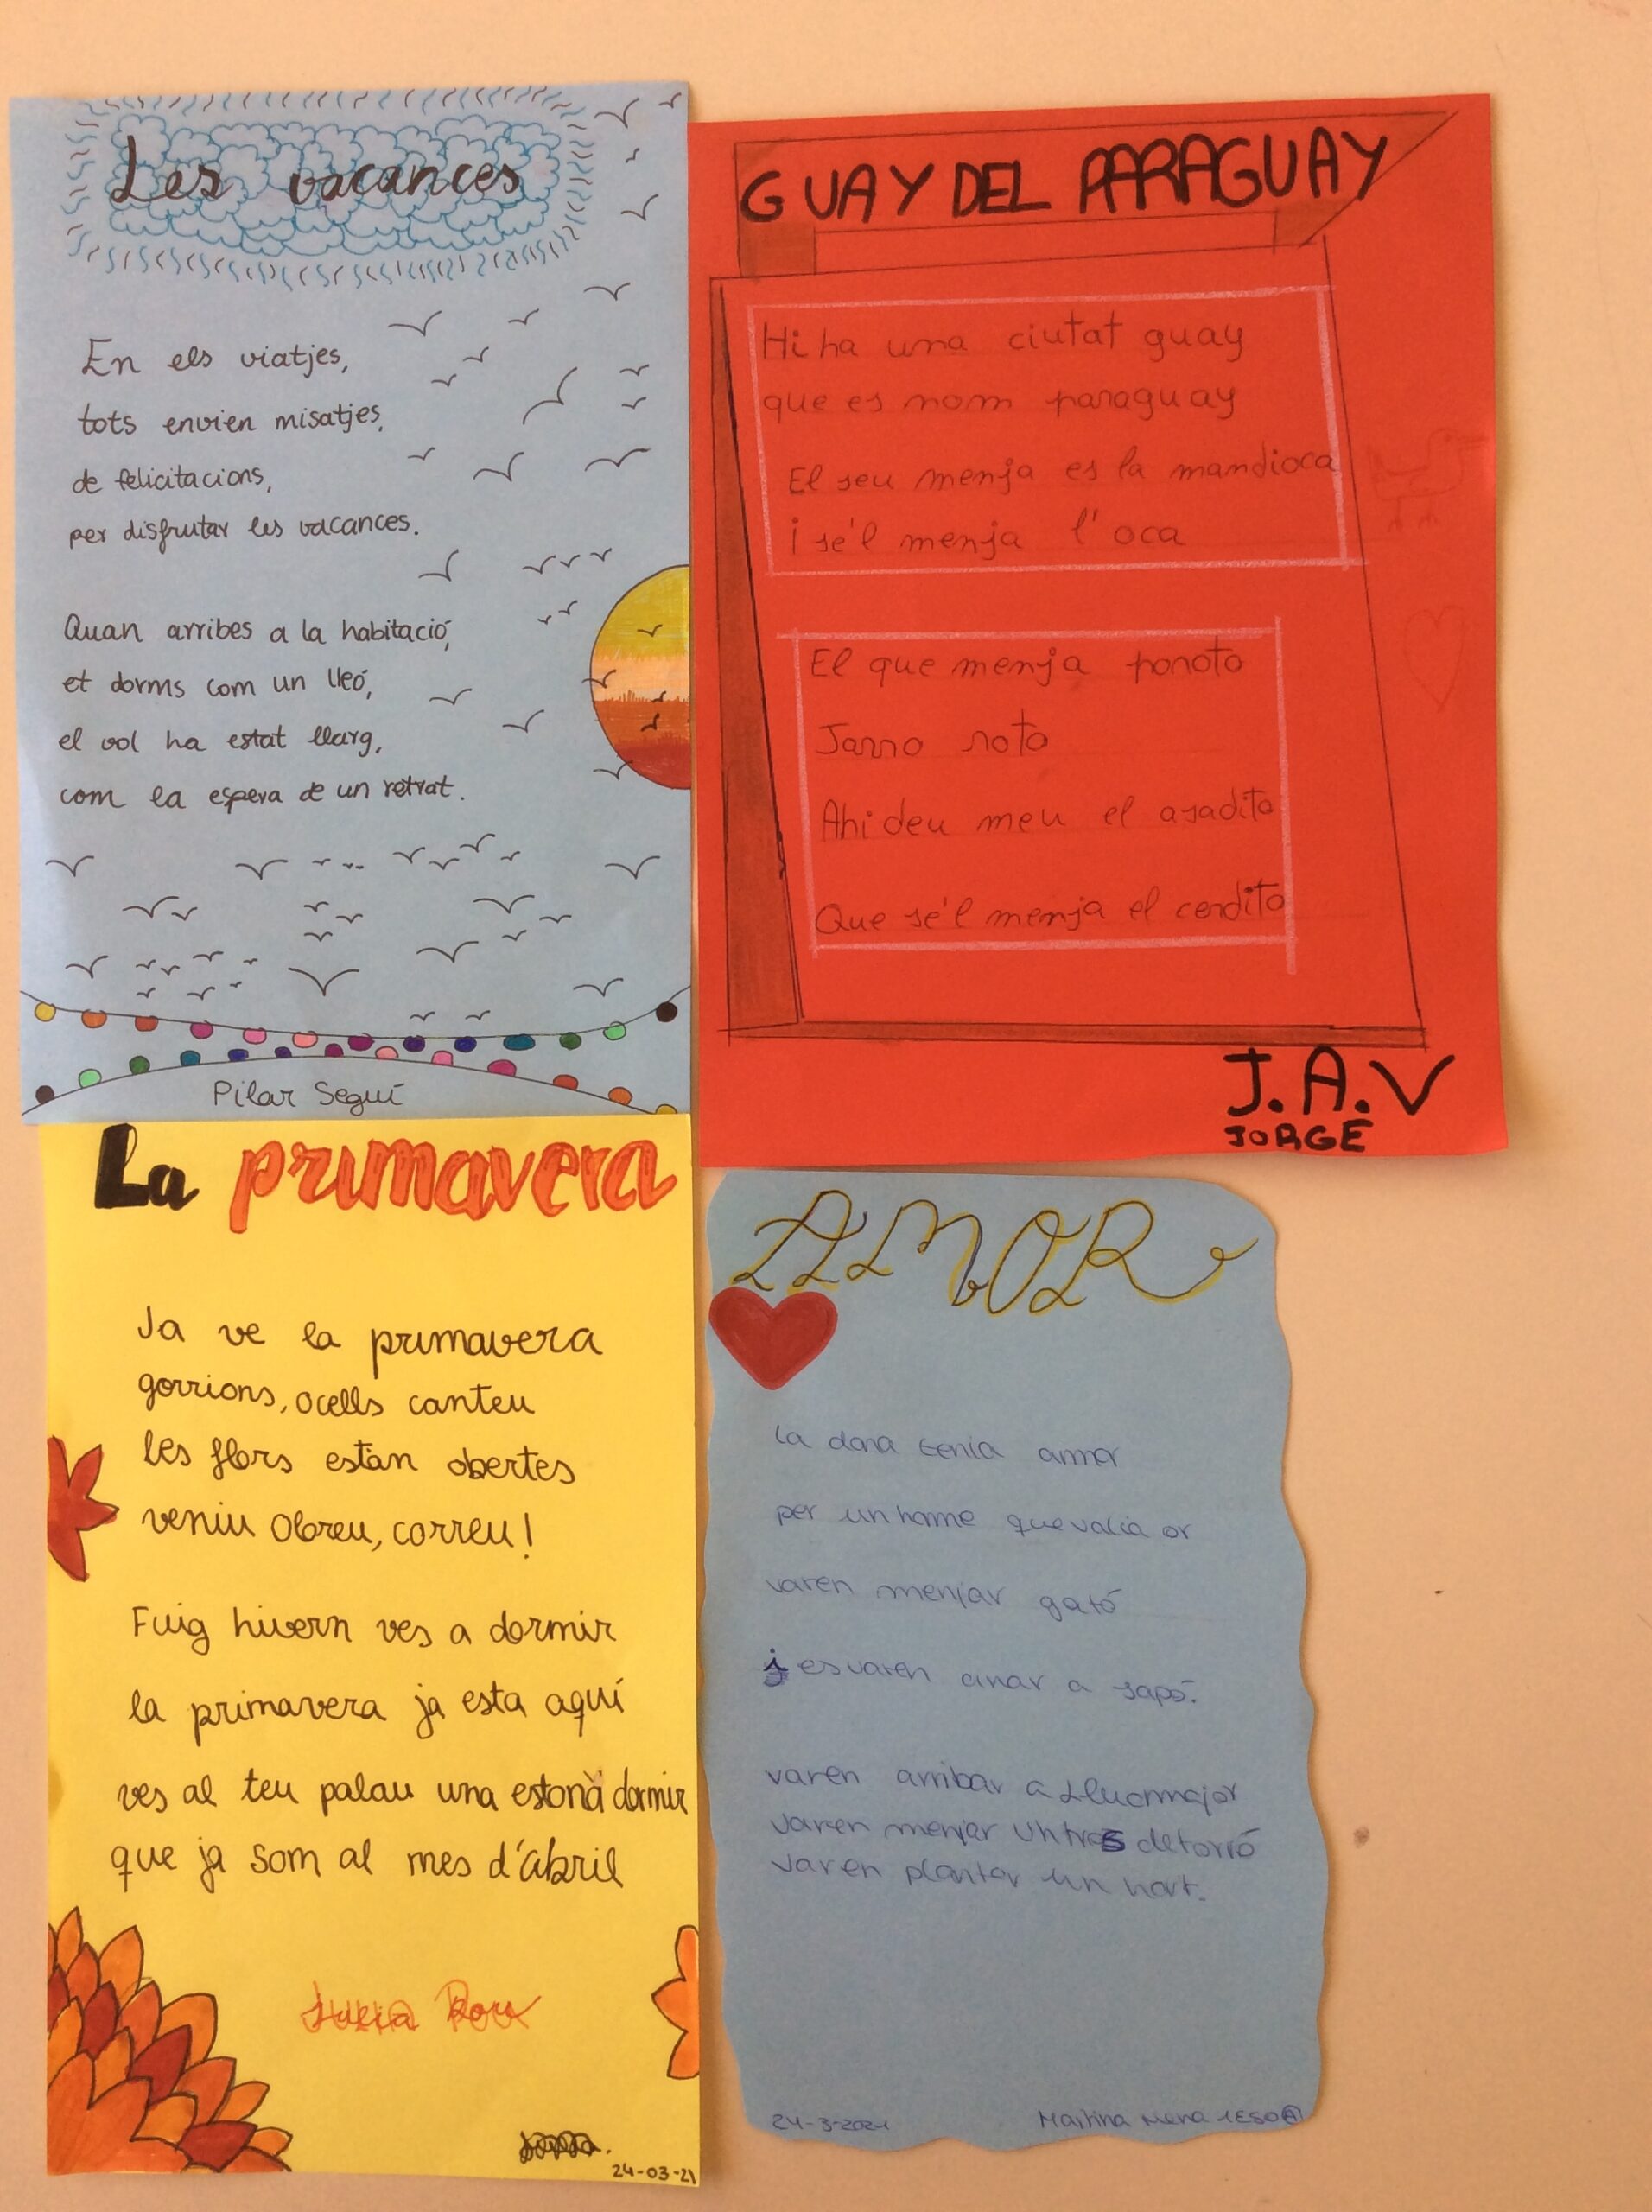 Les vacances
En els viatjes,
tots envien misatjes,
de felicitacions,
per disfrutar les vacances.
Quan arribes a la habitació,
et dorms com un lleó,
el vol ha estat llarg,
com la espera de un retrat.
Pilar Seguí
GUAY DEL PARAGUAY
Hi ha una ciutat guay
que es nom paraguay
El seu menja es la mandioca
i sé'l menja l'oca
El que menja poroto
Jarro roto
Ahi deu meu el asadito
Que sé'l menja el cerdito
J.A.V
JORGE
La primavera
Ja ve la primavera
gorrions, ocells canteu
les flors estàn obertes
veniu obreu, correu!
Fuig hivern ves a dormir
la primavera ja esta aquí
ves al teu palau una estonà dormir
que ja som al mes d'abril
24-03-21
AMOR
la dona tenia amor
per un home que valia or
varen menjar gató
i es varen anar a sapó.
varen arribar a Llucmajor
varen menjar un tros de torró
varen plantar un hort.
24-3-2021
Martina Mena 1ESO A